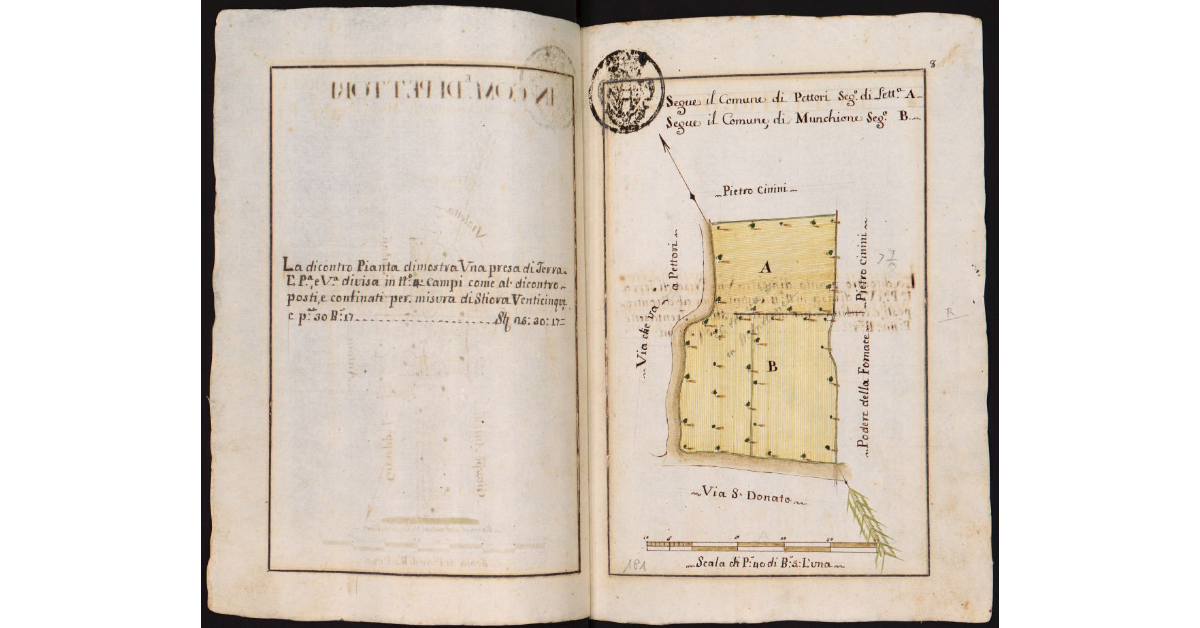 La dicontro Pianta dimostra Vna presa di Terra
L. P.ª e V.ª divisa in tt.º 4 Campi come al dicontro
posti, e confinati per misura di Stiora Venticinque
e p.ª 30 B.ª 17 Sti 25: 30: 17
8
Segue il Comune di Pettori Seg.º di Lett.ª A
Segue il Comune di Munchione Seg.º B
Pietro Cinini
Via che va a Pettori
Pietro Cinini
A
B
Podere della Fornace
Via S. Donato
Scala di P.ª 40 di B.ª 5 L'una
181